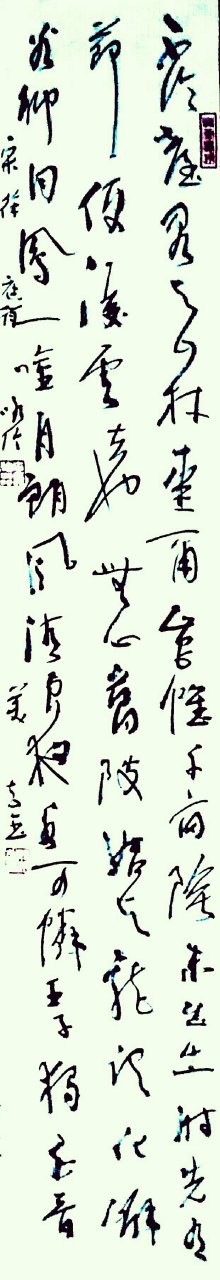 不论臺閣与山林爱爾豈惟千亩陰未出土时先有
節便凌雲去也無心葛陂始与龍俱化嶰
谷聊同鳳一唫月朗风清良夜永可憐王子獨知音
宋徐庭筠咏竹